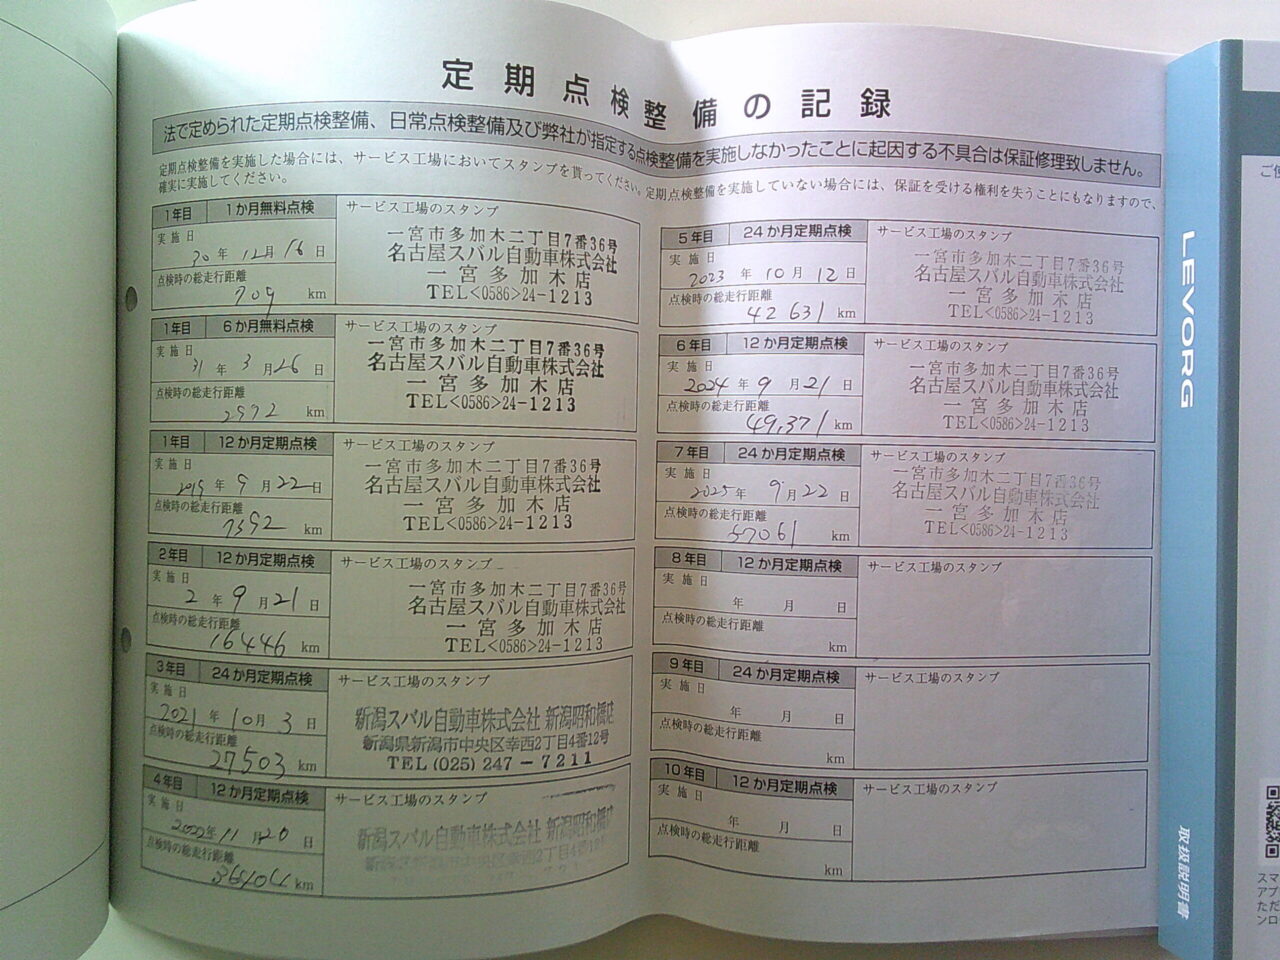 定期点検整備の記録
法で定められた定期点検整備、日常点検整備及び弊社が指定する点検整備を実施しなかったことに起因する不具合は保証修理致しません。
定期点検整備を実施した場合には、サービス工場においてスタンプを貰ってください。定期点検整備を実施していない場合には、保証を受ける権利を失うことにもなりますので、
確実に実施してください。
1年目 1か月無料点検 サービス工場のスタンプ
実施日
30年12月16日
点検時の総走行距離
709 km
一宮市多加木二丁目7番36号
名古屋スバル自動車株式会社
一宮多加木店
TEL<0586>24-1213
1年目 6か月無料点検 サービス工場のスタンプ
実施日
31年3月26日
点検時の総走行距離
2992 km
一宮市多加木二丁目7番36号
名古屋スバル自動車株式会社
一宮多加木店
TEL<0586>24-1213
1年目 12か月定期点検 サービス工場のスタンプ
実施日
2019年9月22日
点検時の総走行距離
7392 km
一宮市多加木二丁目7番36号
名古屋スバル自動車株式会社
一宮多加木店
TEL<0586>24-1213
2年目 12か月定期点検 サービス工場のスタンプ
実施日
2年9月21日
点検時の総走行距離
16446 km
一宮市多加木二丁目7番36号
名古屋スバル自動車株式会社
一宮多加木店
TEL<0586>24-1213
3年目 24か月定期点検 サービス工場のスタンプ
実施日
2021年10月3日
点検時の総走行距離
27503 km
新潟スバル自動車株式会社 新潟昭和橋店
新潟県新潟市中央区幸西2丁目4番12号
TEL (025) 247-7211
4年目 12か月定期点検 サービス工場のスタンプ
実施日
2022年11月20日
点検時の総走行距離
km
新潟スバル自動車株式会社 新潟昭和橋店
5年目 24か月定期点検 サービス工場のスタンプ
実施日
2023年10月12日
点検時の総走行距離
42631 km
一宮市多加木二丁目7番36号
名古屋スバル自動車株式会社
一宮多加木店
TEL<0586>24-1213
6年目 12か月定期点検 サービス工場のスタンプ
実施日
2024年9月21日
点検時の総走行距離
49,371 km
一宮市多加木二丁目7番36号
名古屋スバル自動車株式会社
一宮多加木店
TEL<0586>24-1213
7年目 24か月定期点検 サービス工場のスタンプ
実施日
2025年9月22日
点検時の総走行距離
57061 km
一宮市多加木二丁目7番36号
名古屋スバル自動車株式会社
一宮多加木店
TEL<0586>24-1213
8年目 12か月定期点検 サービス工場のスタンプ
実施日
年 月 日
点検時の総走行距離
km
9年目 24か月定期点検 サービス工場のスタンプ
実施日
年 月 日
点検時の総走行距離
km
10年目 12か月定期点検 サービス工場のスタンプ
実施日
年 月 日
点検時の総走行距離
km
LEVORG
取扱説明書
ご使
スマ
アプ
ただ
ンロ